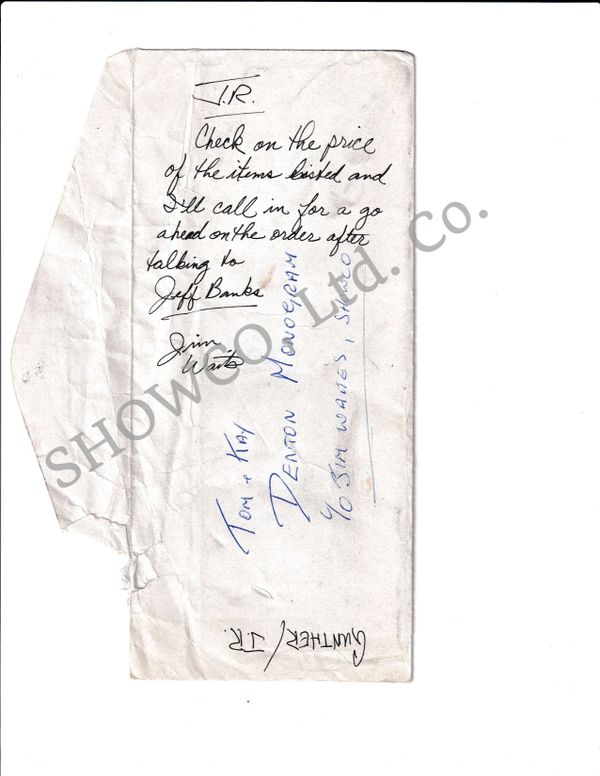 J.R.
Check on the price
of the items listed and
I'll call in for a go
ahead on the order after
talking to
Jeff Banks
Jim
Waits
TOM + KAY
DENTON MONOGRAM
℅ JIM WAITES, SHOWCO
GUNTHER / J.R.
SHOWCO Ltd. Co.